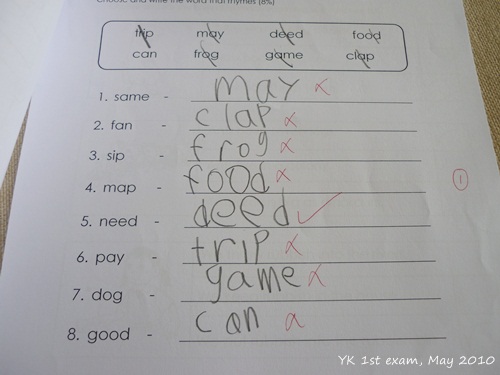 Choose and write the word that rhymes (8%)
trip may deed food
can frog game clap
1. same - may x
2. fan - clap x
3. sip - frog x
4. map - food x
5. need - deed ✓
6. pay - trip x
7. dog - game x
8. good - can x
1
YK 1st exam, May 2010